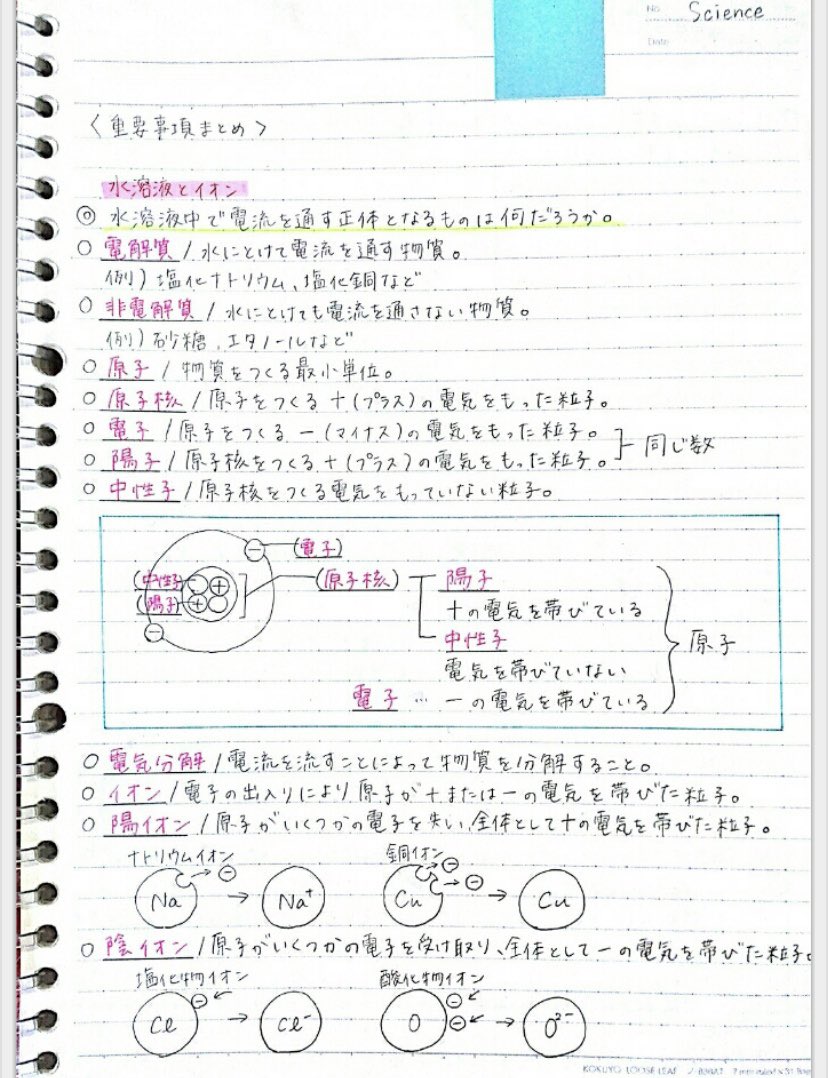 No. Science
Date
〈重要事項まとめ〉
水溶液とイオン
◎ 水溶液中で電流を通す正体となるものは何だろうか。
○ 電解質 / 水にとけて電流を通す物質。
例) 塩化ナトリウム、塩化銅など
○ 非電解質 / 水にとけても電流を通さない物質。
例) 砂糖、エタノールなど
○ 原子 / 物質をつくる最小単位。
○ 原子核 / 原子をつくる+(プラス)の電気をもった粒子。
○ 電子 / 原子をつくる-(マイナス)の電気をもった粒子。
○ 陽子 / 原子核をつくる+(プラス)の電気をもった粒子。
同じ数
○ 中性子 / 原子核をつくる電気をもっていない粒子。
- (電子)
(中性子) + (原子核) 陽子
(陽子) +
+の電気を帯びている
- 中性子
原子
電気を帯びていない
電子 … -の電気を帯びている
○ 電気分解 / 電流を流すことによって物質を分解すること。
○ イオン / 電子の出入りにより原子が+または-の電気を帯びた粒子。
○ 陽イオン / 原子がいくつかの電子を失い、全体として+の電気を帯びた粒子。
ナトリウムイオン 銅イオン
Na → - → Na⁺ Cu → - → - → Cu
○ 陰イオン / 原子がいくつかの電子を受け取り、全体として-の電気を帯びた粒子。
塩化物イオン 酸化物イオン
Cl - ← → Cl⁻ O - ← - ← → O²⁻
KOKUYO LOOSE-LEAF